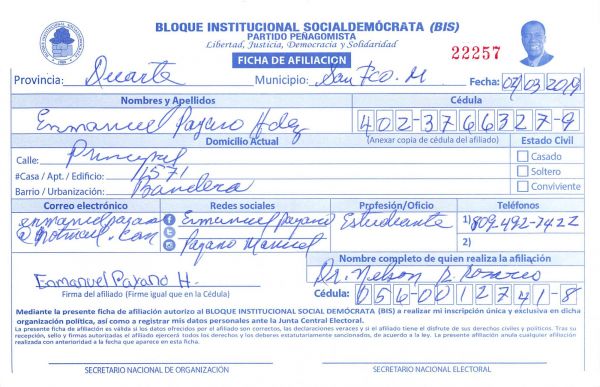 BLOQUE INSTITUCIONAL SOCIALDEMÓCRATA (BIS)
PARTIDO PEÑAGOMISTA
Libertad, Justicia, Democracia y Solidaridad
FICHA DE AFILIACION
22257
Provincia: Duarte Municipio: San Fco. M Fecha: 07/03/2019
Nombres y Apellidos Cédula
Enmanuel Payano Hdez 402-3766327-9
Domicilio Actual (Anexar copia de cédula del afiliado) Estado Civil
Calle: Principal Casado
#Casa / Apt. / Edificio: 1571 Soltero
Barrio / Urbanización: Bandera Conviviente
Correo electrónico Redes sociales Profesión/Oficio Teléfonos
enmanuelpayano Enmanuel Payano Estudiante 1) 809-492-7422
@hotmail.com Payano Manuel 2)
Nombre completo de quien realiza la afiliación
Enmanuel Payano H. Dr. Nelson R. Rosario
Firma del afiliado (Firme igual que en la Cédula) Cédula: 056-0012741-8
Mediante la presente ficha de afiliación autorizo al BLOQUE INSTITUCIONAL SOCIAL DEMÓCRATA (BIS) a realizar mi inscripción única y exclusiva en dicha
organización política, así como a registrar mis datos personales ante la Junta Central Electoral.
La presente ficha de afiliación es válida si los datos ofrecidos por el afiliado son correctos, las declaraciones veraces y si el afiliado tiene el disfrute de sus derechos civiles y políticos. Tras su
recepción, sello y firmas autorizadas el afiliado ejercerá todos los derechos y los deberes estatutariamente sancionados, de acuerdo a la ley. La presente afiliación anula cualquier afiliación
realizada con anterioridad a la fecha que aparece en esta ficha.
SECRETARIO NACIONAL DE ORGANIZACIÓN SECRETARIO NACIONAL ELECTORAL